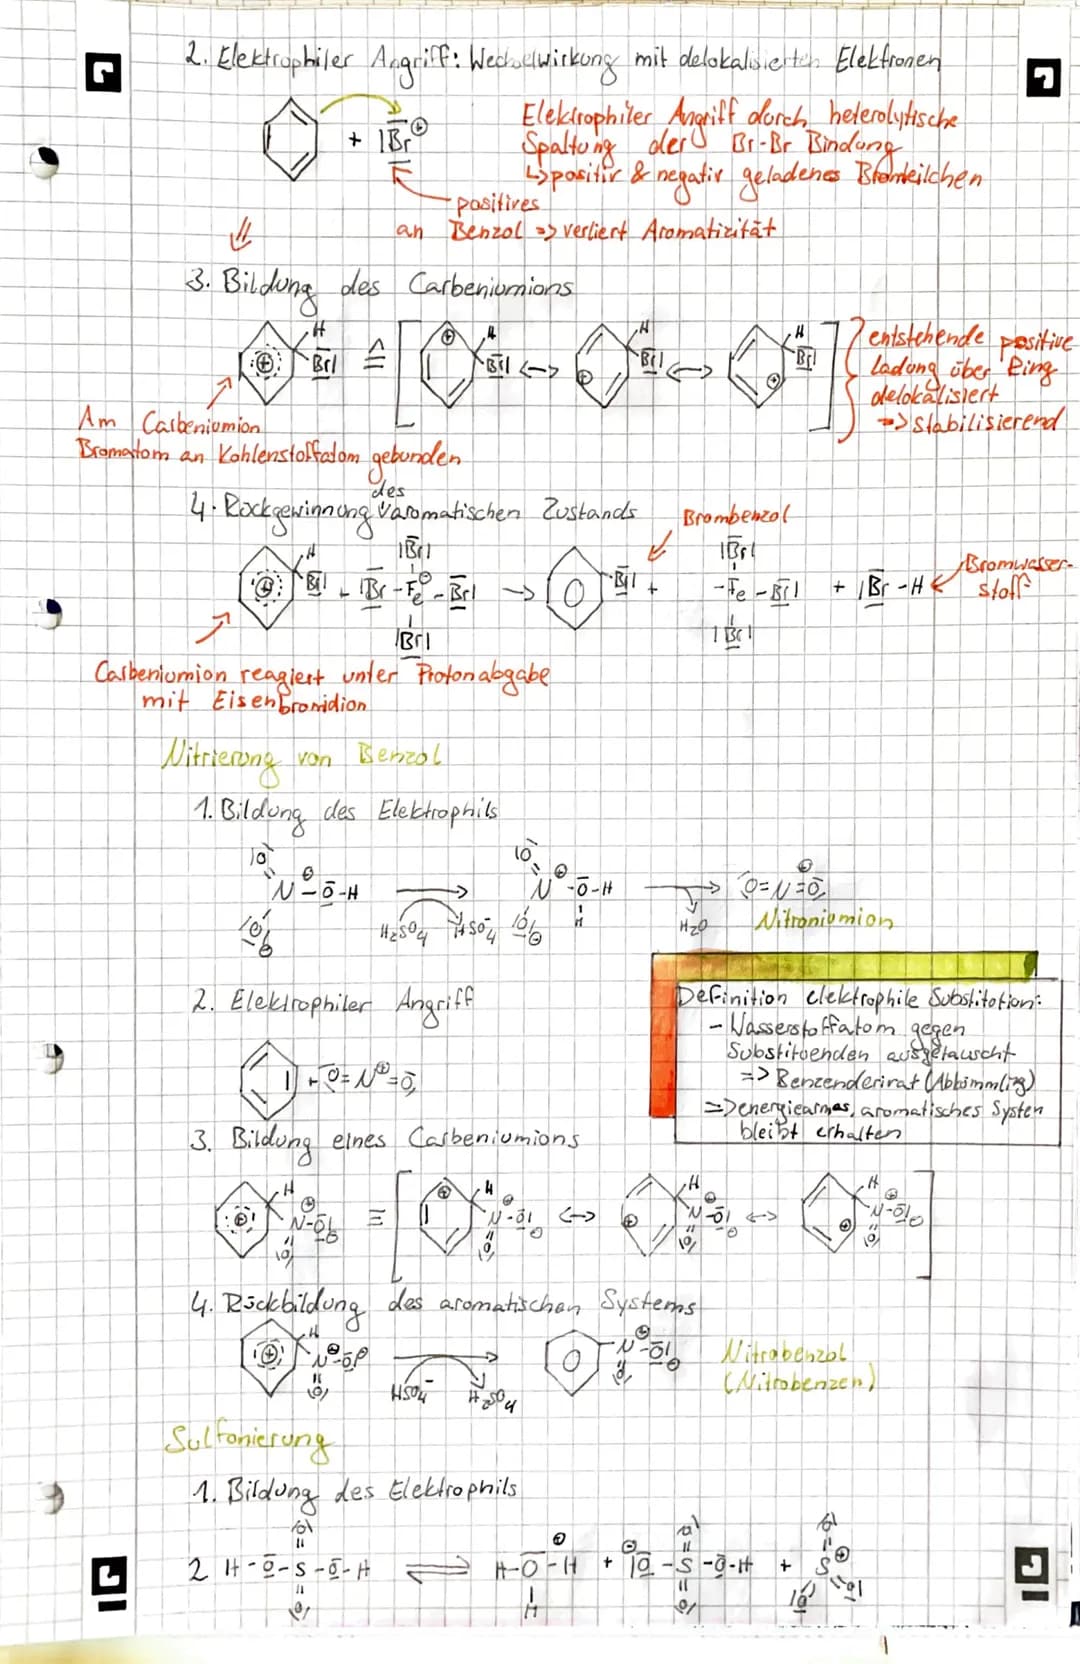 2. Elektrophiler Angriff: Wechselwirkung mit delokalisierten Elektronen
+ |Br⊕
Elektrophiler Angriff durch heterolytische
Spaltung der Br-Br Bindung
↳ positiv & negativ geladenes Bromteilchen
positives
an Benzol => verliert Aromatizität
3. Bildung des Carbeniumions
H H H H
⊕ Br| ≙ ⊕ Br| <-> ⊕ Br| <-> ⊕ Br|
entstehende positive
Ladung über Ring
delokalisiert
=> stabilisierend
Am Carbeniumion
Bromatom an Kohlenstoffatom gebunden
4. Rückgewinnung des aromatischen Zustands
Brombenzol
H |Br| |Br|
⊕ Br| + |Br-Fe⊖-Br| -> Br| + -Fe-Br| + |Br-H
|Br| |Br|
Bromwasser-
stoff
Carbeniumion reagiert unter Protonabgabe
mit Eisenbromidion
Nitrierung von Benzol
1. Bildung des Elektrophils
N⊕-O-H N⊕-O-H O=N⊕=O
H
H2SO4 HSO4⁻ H2O
Nitroniumion
2. Elektrophiler Angriff
+ O=N⊕=O
Definition elektrophile Substitution:
- Wasserstoffatom gegen
Substituenden ausgetauscht
=> Benzenderivat (Abkömmling)
=> energiearmes, aromatisches System
bleibt erhalten
3. Bildung eines Carbeniumions
H H H H
⊕ N-O| ≡ ⊕ N-O| <-> ⊕ N-O| <-> ⊕ N-O|
|O| |O| |O| |O|
4. Rückbildung des aromatischen Systems
H
⊕ N⊕-O N⊕-O|⊖
|O| |O|
HSO4⁻ H2SO4
Nitrobenzol
(Nitrobenzen)
Sulfonierung
1. Bildung des Elektrophils
|O| |O| |O|
2 H-O-S-O-H ⇌ H-O⊕-H + ⊖|O-S-O-H + S⊕
|O| H |O| |O| |O|